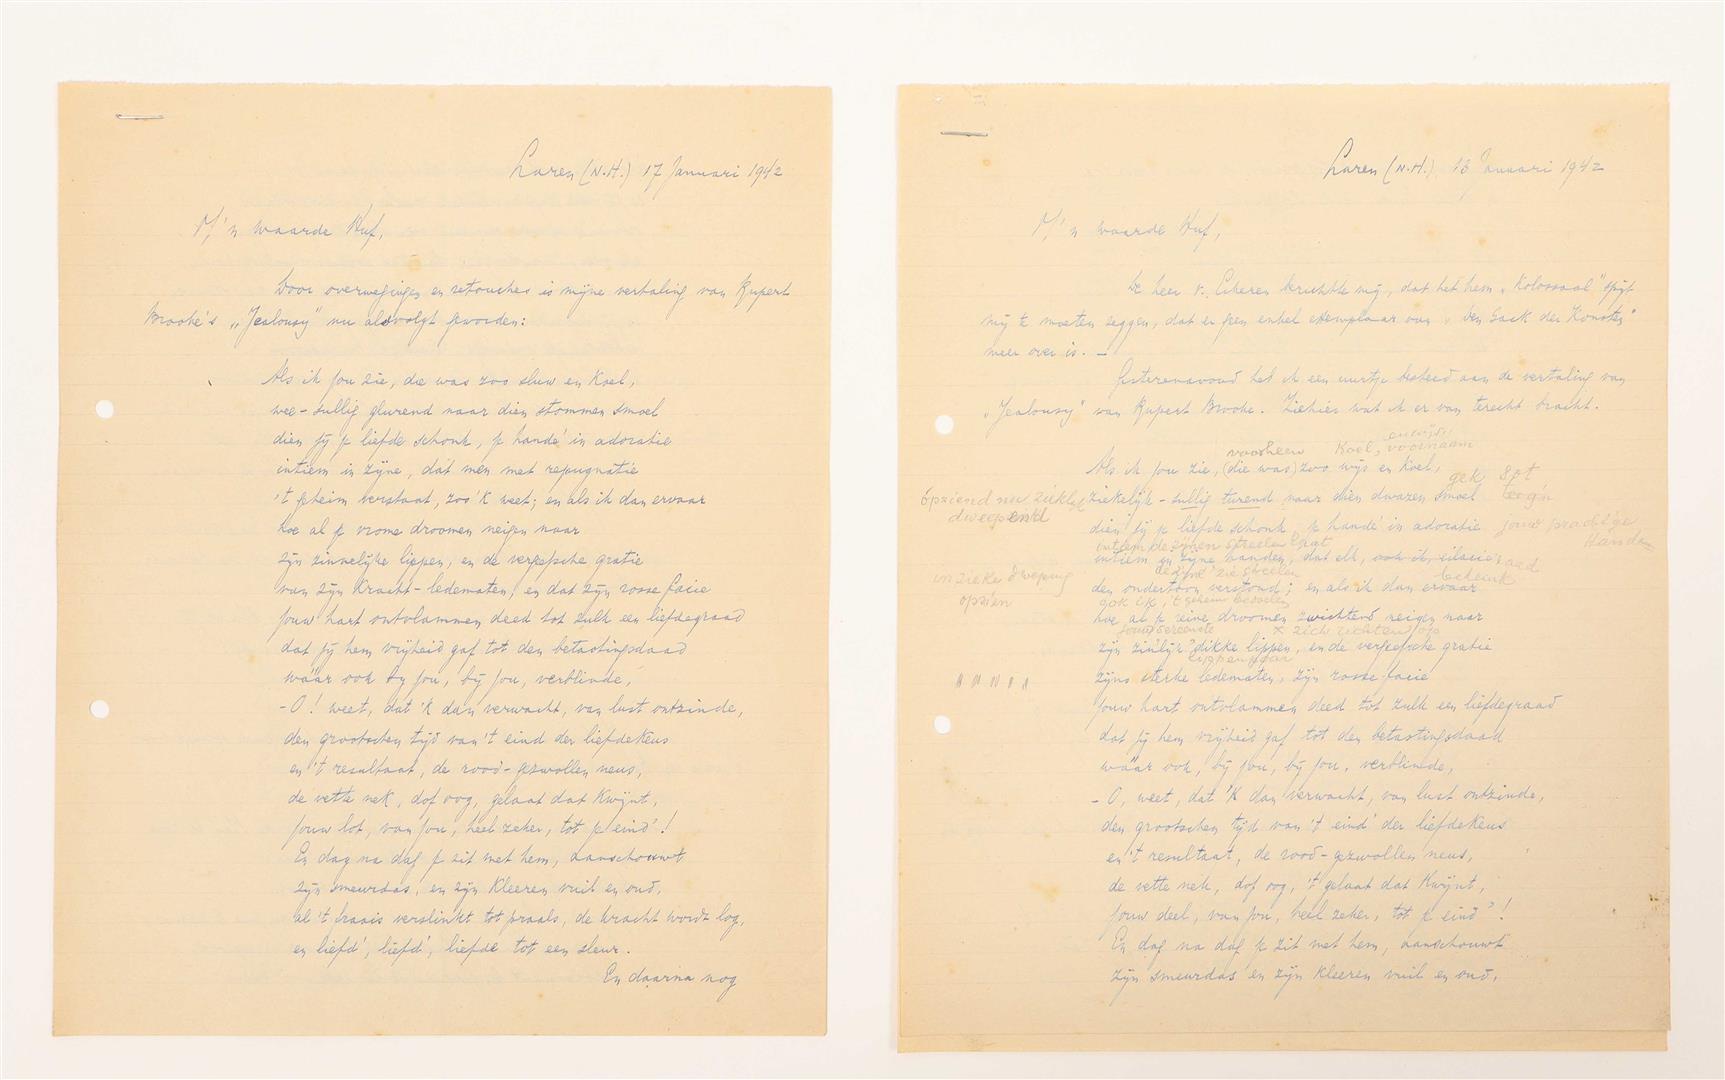 Laren (N.H.) 17 Januari 1942
M'n waarde Huf,
Door overwegingen en retouches is mijne vertaling van Rupert
Brooke's „Jealousy" nu alsvolgt geworden:
Als ik jou zie, die was zoo sluw en koel,
wee-sullig glurend naar dien stommen smoel
dien jij je liefde schonk, je hande' in adoratie
intiem in zijne, dát men met repugnatie
't geheim verstaat, zoo 'k weet; en als ik dan ervaar
hoe al je vrome droomen neigen naar
zijn zinnelijke lippen, en de verfoeische gratie
van zijn kracht-ledematen, en dat zijn rosse facie
jouw hart ontvlammen deed tot zulk een liefdegraad
dat jij hem vrijheid gaf tot den betastingsdaad
wáár ook by jou, bij jou, verblinde,
- O! weet, dat 'k dan verwacht, van lust ontzinde,
den grootschen tijd van 't eind der liefdekeus
en 't resultaat, de rood-gezwollen neus,
de vette nek, dof oog, gelaat dat kwijnt,
jouw lot, van jou, heel zeker, tot je eind'!
En dag na dag je zit met hem, aanschouwt
zijn smeurdas, en zijn kleeren vuil en oud,
al 't fraais verslinkt tot praals, de kracht wordt log,
en liefd', liefd', liefde tot een sleur.
En daarna nog
Laren (N.H.) 13 Januari 1942
M'n waarde Huf,
De heer v. Eckeren berichtte mij, dat het hem „Kolossaal" spijt
mij te moeten zeggen, dat er geen enkel exemplaar van „Den Sack der Konsten"
meer over is. —
Gisterenavond heb ik een uurtje besteed aan de vertaling van
„Jealousy" van Rupert Brooke. Ziehier wat ik er van terecht bracht.
voorheen koel, voornaam
Als ik jou zie, (die was) zoo wijs en koel,
gek Spt
opziend nu ziekelijk ziekelijk-sullig turend naar dien dwazen smoel
dweepend
dien jij je liefde schonk, je hande' in adoratie jouw prachtige
handen
intiem de zijnen streelen laat
intiem in zijne handen, dat elk, ook ik,
in zieke dweping
bedenk
den ondertoon verstond; en als ik dan ervaar
opzien
ook ik, 't geheim
hoe al je reine droomen zwichtend neigen naar
jouw sereenste x zich richten op
zijn zinlijk dikke lippen, en de verfoeische gratie
lippenpaar
zijns sterke ledematen, zijn rosse facie
jouw hart ontvlammen deed tot zulk een liefdegraad
dat jij hem vrijheid gaf tot den betastingsdaad
wáár ook, bij jou, bij jou, verblinde,
- O, weet, dat 'k dan verwacht, van lust ontzinde,
den grootschen tijd van 't eind' der liefdekeus
en 't resultaat, de rood-gezwollen neus,
de vette nek, dof oog, 't gelaat dat kwijnt,
jouw deel, van jou, heel zeker, tot je eind'!
En dag na dag je zit met hem, aanschouwt
zijn smeurdas en zijn kleeren vuil en oud,